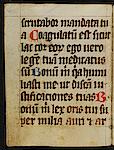 scrutabor mandata tua
Coagulatū est sicut
lac cor eor ego uero
legē tuā meditatus
sū Bonū m̄ q̄ humi
liasti me ut discā iu
stificationes tuas B
onū m̄ lex oris tui su
per milia auri & ar